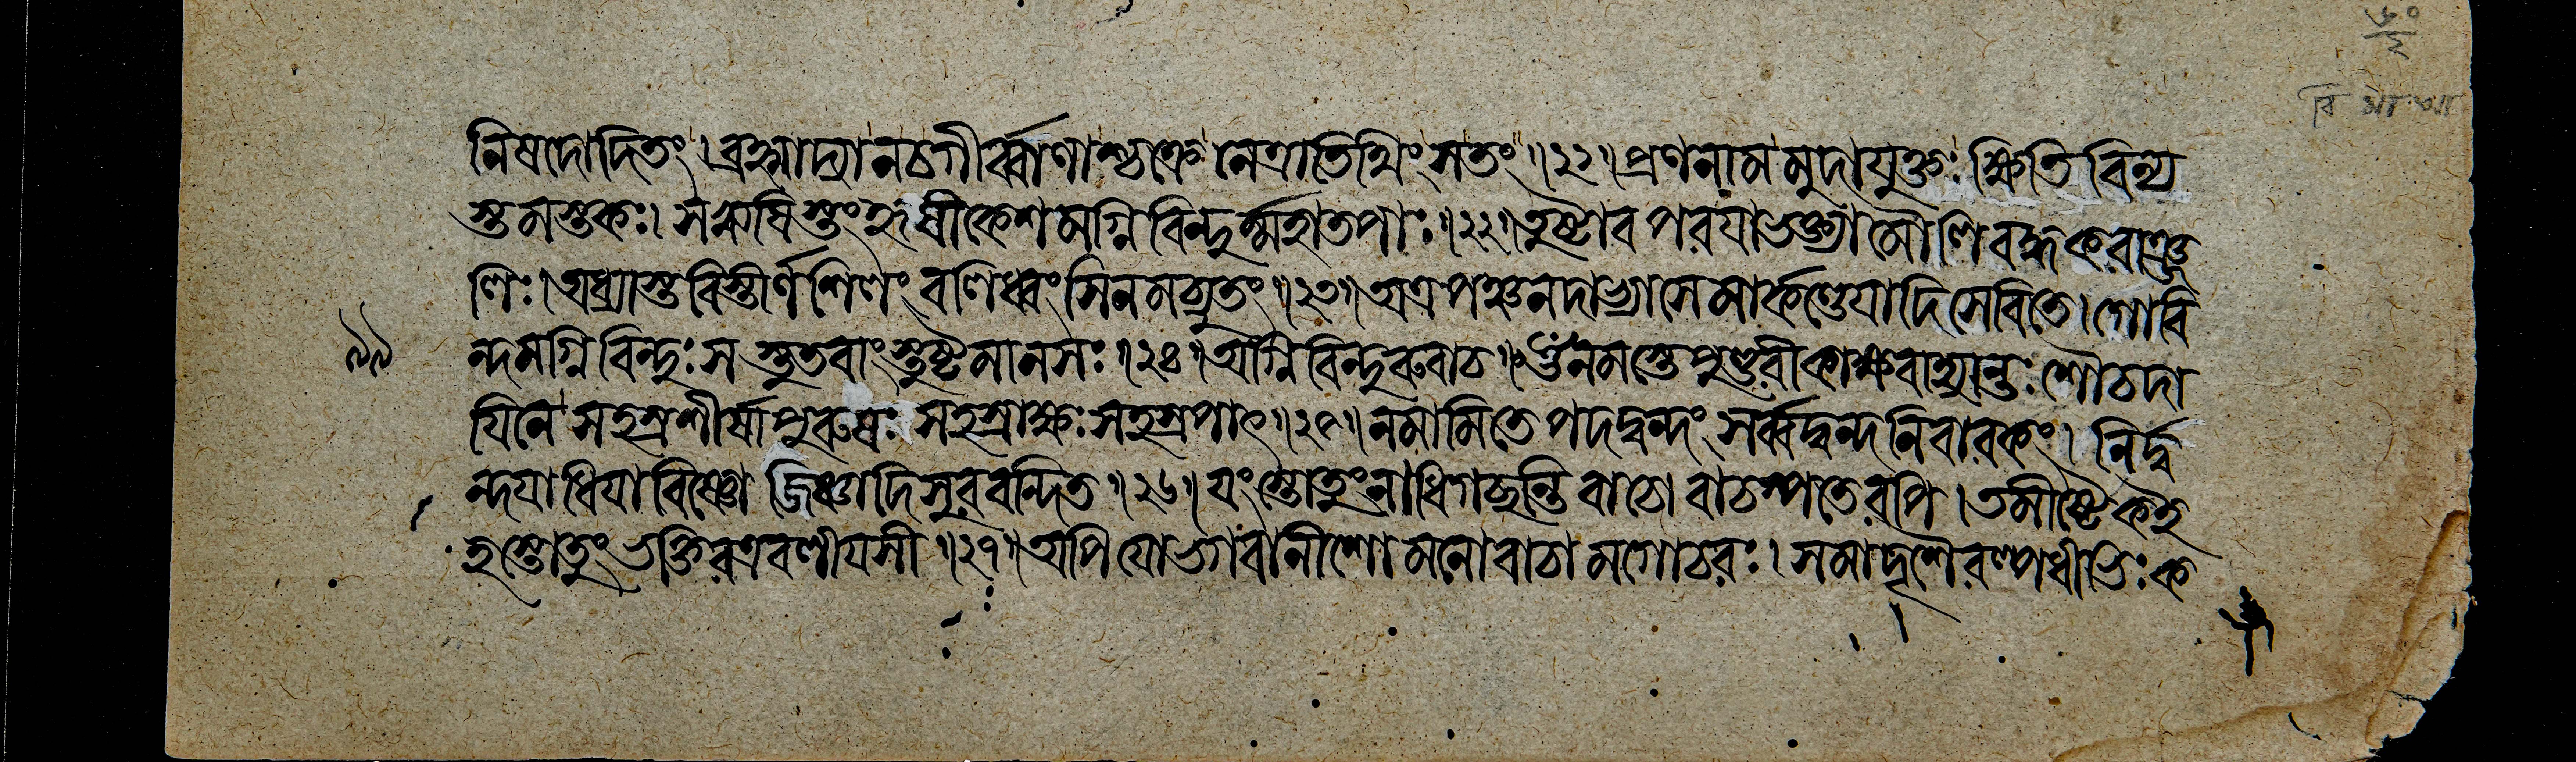 ৬০
২
বি মা আ
নিষদোদিতং । ব্রহ্মাদ্যানচগীর্ব্বাণাশ্চক্রে নেত্রাতিথিং সতং ॥২১॥ প্রণনাম মুদাযুক্তঃ ক্ষিতি বিন্য
স্তমস্তকঃ । সঋষিস্তং হৃষীকেশমগ্নিবিন্দুর্ম্মহাতপাঃ ॥২২॥ তুষ্টাব পরযাভক্ত্যা মৌলিবদ্ধকরাঞ্জ
লিঃ । অধ্যাস্তবিস্তীর্ণশিলং বলিধ্বংসিনমচ্যুতং ॥২৩॥ অত্র পঞ্চনদাভ্যাসে মার্কণ্ডেযাদি সেবিতে । গোবি
ন্দমগ্নিবিন্দুঃ স স্তুতবাংস্তুষ্টমানসঃ ॥২৪॥ অগ্নিবিন্দুরুবাচ ॥ ওঁ নমস্তে পুণ্ডরীকাক্ষ বাহ্যান্তঃ শৌচদা
যিনে সহস্রশীর্ষা পুরুষঃ সহস্রাক্ষঃ সহস্রপাৎ ॥২৫॥ নমামি তে পদদ্বন্দং সর্ব্বদ্বন্দনিবারকং । নির্দ্ব
ন্দযা ধিযা বিষ্ণো জিষ্ণাদিসুরবন্দিত ॥২৬॥ যং স্তোতুং নাধিগচ্ছন্তি বাচো বাচস্পতেরপি । তমীষ্টে কইহ
হস্তোতুং ভক্তিরত্রবলীযসী ॥২৭॥ অপি যো ভগবানীশো মনোবাচামগোচরঃ । সমাদৃশৈরল্পধীভিঃ ক
৯৯